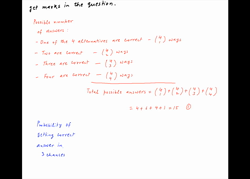 get marks in the question.
Possible number
of answers
- One of the 4 alternatives are correct - (4 1) ways
- Two are correct - (4 2) ways
- Three are correct - (4 3) ways
- Four are correct - (4 4) ways
Total possible answers = (4 1) + (4 2) + (4 3) + (4 4)
= 4+6+4+1 = 15
Probability of
getting correct
answer in
3 chances